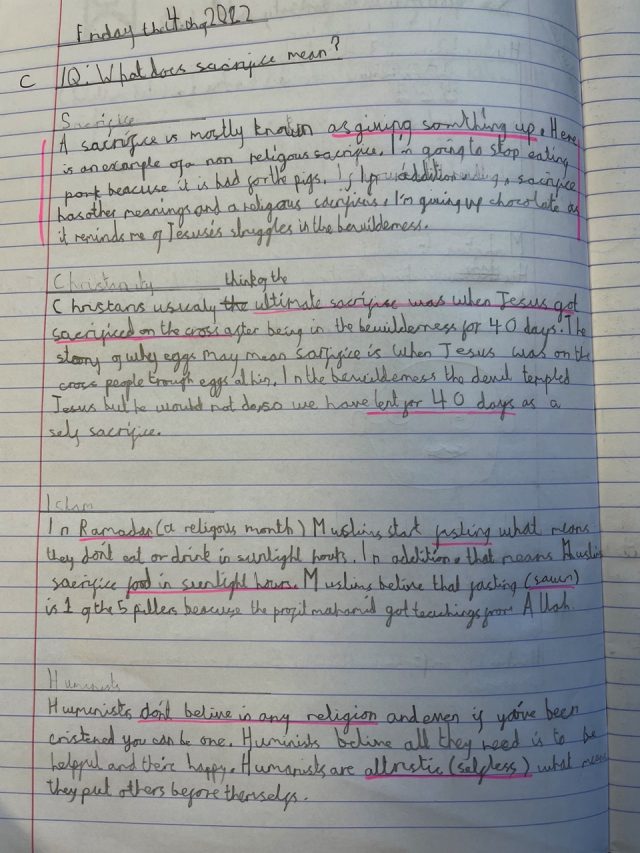 Friday 2022
C
IQ: What does sacrifice mean?
Sacrifice
A sacrifice is mostly known as giving somthing up. Here
is an example of a non religious sacrifice. I'm going to stop eating
pork beacuse it is bad for the pigs. In addition, sacrifice
has other meanings and a religous I'm giving up chocolate as
it reminds me of Jesuses struggles in the bewilderness.
Christianity
think of the
Christans usualy the ultimate sacrifise was when Jesus got
sacrificed on the cross after being in the bewilderness for 40 days. The
story of why eggs may mean sacrifice is when Jesus was on the
cross people through eggs at him. In the bewilderness the devil tempted
Jesus but he would not do, so we have lent for 40 days as a
self sacrifice.
Islam
In Ramadan (a religous month) Muslims start fasting what means
they don't eat or drink in sunlight hours. In addition, that means Muslims
sacrifice food in sunlight hours. Muslims belive that fasting (sawm)
is 1 of the 5 pillers because the mahamid got teachings from Allah.
Humanists
Humunists don't belive in any religion and even if you've been
cristened you can be one. Huminists belive all they need is to be
helpful and there happy. Humanists are (selfless) what means
they put others before themselfs.